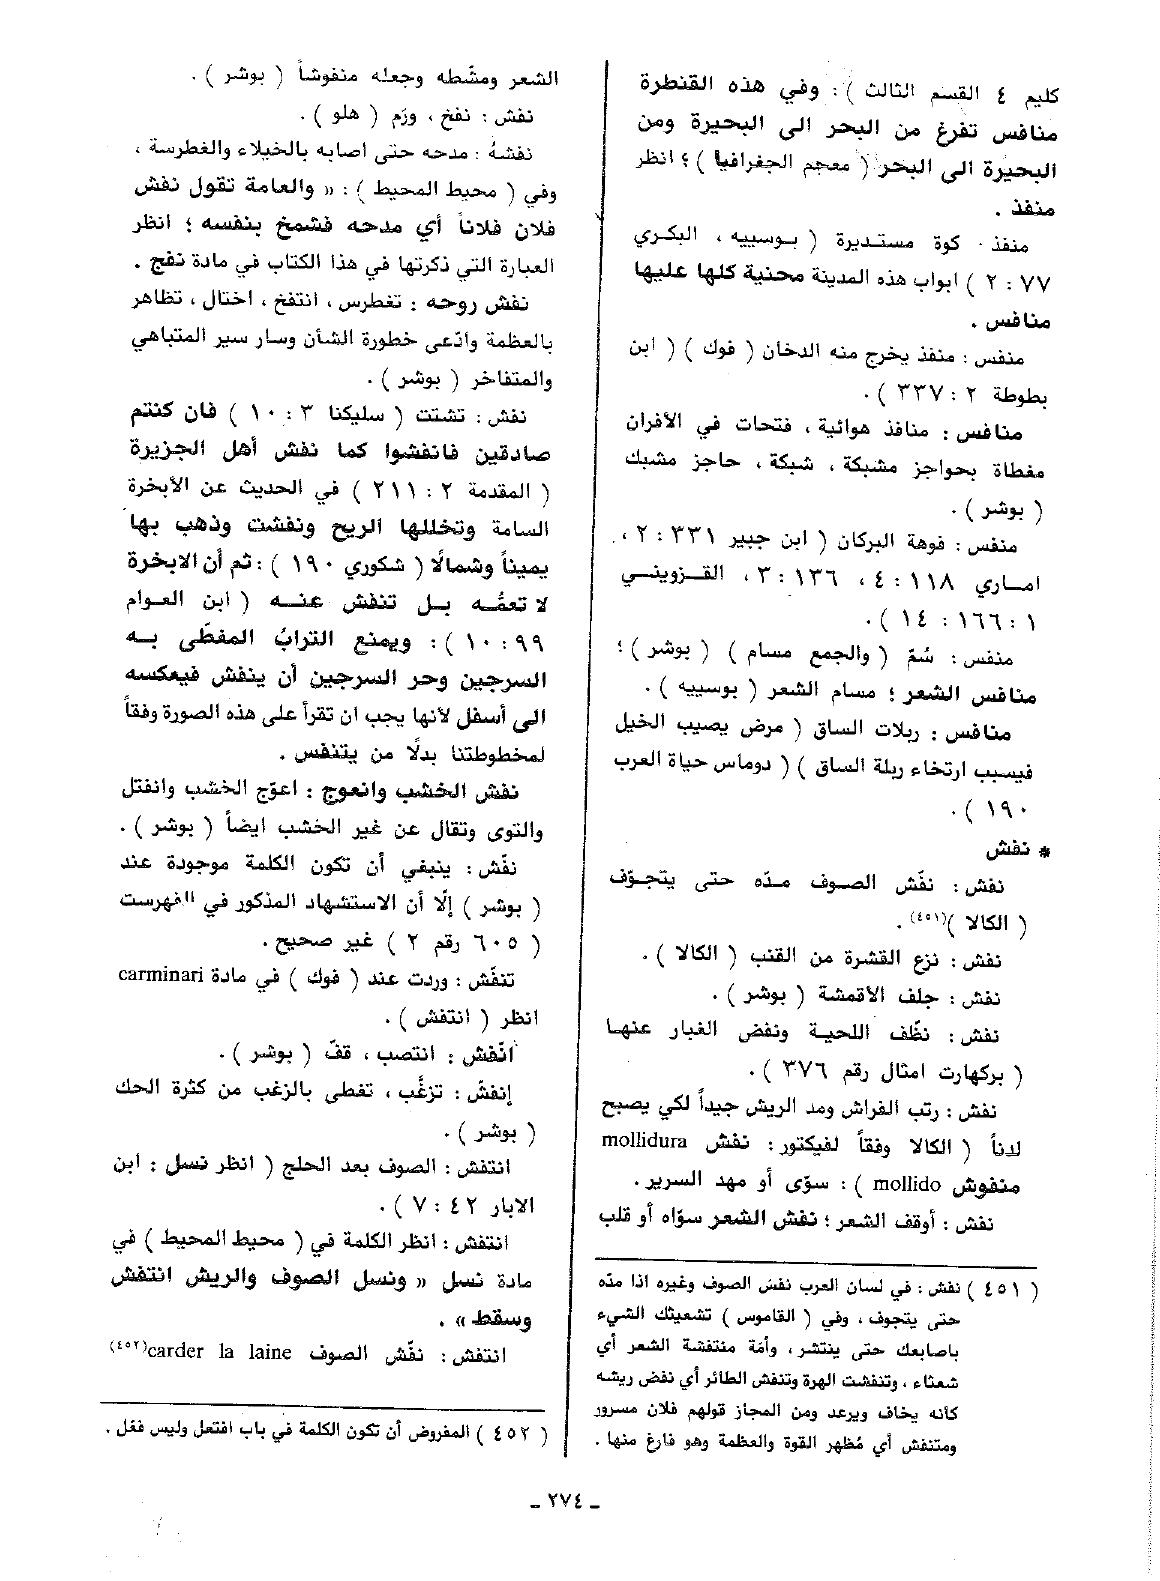 كليم ٤ القسم الثالث ) : وفي هذه القنطرة
منافس تفرغ من البحر الى البحيرة ومن
البحيرة الى البحر ( معجم الجغرافيا ) ؟ انظر
منفذ .
منفذ . كوة مستديرة ( بوسييه ، البكري
٧٧ : ٢ ) ابواب هذه المدينة محنية كلها عليها
منافس .
منفس : منفذ يخرج منه الدخان ( فوك ) ( ابن
بطوطة ٢ : ٣٣٧ ) .
منافس : منافذ هوائية ، فتحات في الأفران
مغطاة بحواجز مشبكة ، شبكة ، حاجز مشبك
( بوشر ) .
منفس : فوهة البركان ( ابن جبير ٣٣١ : ٢ ،
اماري ١١٨ : ٤ ، ١٣٦ : ٣ ، القزويني
١ : ١٦٦ : ١٤ ) .
منفس : سُمّ ( والجمع مسام ) ( بوشر ) ؛
منافس الشعر ؛ مسام الشعر ( بوسييه ) .
منافس : ربلات الساق ( مرض يصيب الخيل
فيسبب ارتخاء ربلة الساق ) ( دوماس حياة العرب
١٩٠ ) .
* نفش
نفش : نفّش الصوف مدّه حتى يتجوّف
( الكالا )(٤٥١) .
نفش : نزع القشرة من القنب ( الكالا ) .
نفش : جلف الأقمشة ( بوشر ) .
نفش : نظّف اللحية ونفض الغبار عنها
( بركهارت امثال رقم ٣٧٦ ) .
نفش : رتب الفراش ومد الريش جيداً لكي يصبح
لدناً ( الكالا وفقاً لفيكتور : نفش mollidura
منفوش mollido ) : سوّى أو مهد السرير .
نفش : أوقف الشعر ؛ نفش الشعر سوّاه أو قلب
( ٤٥١ ) نفش : في لسان العرب نفش الصوف وغيره اذا مدّه
حتى يتجوف ، وفي ( القاموس ) تشعيثك الشيء
باصابعك حتى ينتشر ، وأمَة منتفشة الشعر أي
شعثاء ، وتنفشت الهرة وتنفش الطائر أي نفض ريشه
كأنه يخاف ويرعد ومن المجاز قولهم فلان مسرور
ومتنفش أي مُظهر القوة والعظمة وهو فارغ منها .
الشعر ومشّطه وجعله منفوشاً ( بوشر ) .
نفش : نفخ ، ورّم ( هلو ) .
نفشهُ : مدحه حتى اصابه بالخيلاء والغطرسة ،
وفي ( محيط المحيط ) : « والعامة تقول نفش
فلان فلاناً أي مدحه فشمخ بنفسه ؛ انظر
العبارة التي ذكرتها في هذا الكتاب في مادة نفج .
نفش روحه : تغطرس ، انتفخ ، اختال ، تظاهر
بالعظمة وادّعى خطورة الشأن وسار سير المتباهي
والمتفاخر ( بوشر ) .
نفش : تشتت ( سليكنا ٣ : ١٠ ) فان كنتم
صادقين فانفشوا كما نفش أهل الجزيرة
( المقدمة ٢ : ٢١١ ) في الحديث عن الأبخرة
السامة وتخللها الريح ونفشت وذهب بها
يميناً وشمالًا ( شكوري ١٩٠ ) : ثم أن الابخرة
لا تعمُّه بل تنفش عنه ( ابن العوام
٩٩ : ١٠ ) : ويمنع الترابُ المغطّى به
السرجين وحر السرجين أن ينفش فيعكسه
الى أسفل لأنها يجب ان تقرأ على هذه الصورة وفقاً
لمخطوطتنا بدلًا من يتنفس .
نفش الخشب وانعوج : اعوّج الخشب وانفتل
والتوى وتقال عن غير الخشب ايضاً ( بوشر ) .
نفّش : ينبغي أن تكون الكلمة موجودة عند
( بوشر ) إلّا أن الاستشهاد المذكور في الفهرست
( ٦٠٥ رقم ٢ ) غير صحيح .
تنفّش : وردت عند ( فوك ) في مادة carminari
انظر ( انتفش ) .
انّفش : انتصب ، قفّ ( بوشر ) .
إنفشّ : تزغّب ، تغطى بالزغب من كثرة الحك
( بوشر ) .
انتفش : الصوف بعد الحلج ( انظر نسل : ابن
الابار ٤٢ : ٧ ) .
انتفش : انظر الكلمة في ( محيط المحيط ) في
مادة نسل « ونسل الصوف والريش انتفش
وسقط » .
انتفش : نفّش الصوف carder la laine(٤٥٢)
( ٤٥٢ ) المفروض أن تكون الكلمة في باب افتعل وليس فعّل .
ـ ٢٧٤ ـ